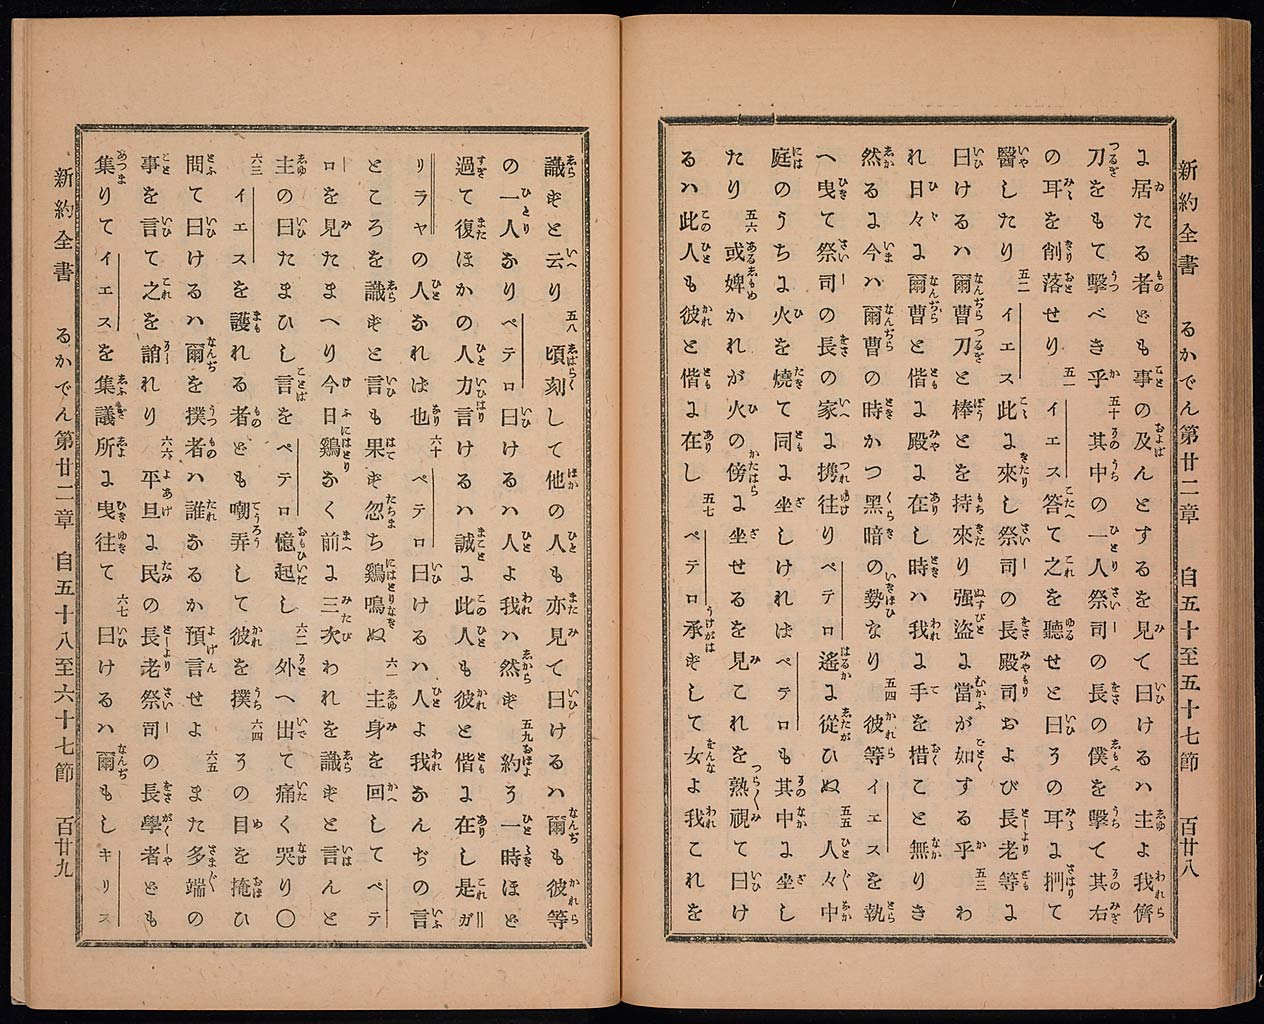 新約全書 るかでん第廿二章 自五十至五十七節 百廿八
に居たる者ども事の及んとするを見て曰けるハ主よ我儕
刀をもて擊べき乎 五十 其中の一人祭司の長の僕を擊て其右
の耳を削落せり 五一 イエス答て之を聽せと曰その耳に捫て
醫したり 五二 イエス此に來し祭司の長殿司および長老等に
曰けるハ爾曹刀と棒とを持來り强盜に當が如する乎 五三 わ
れ日々に爾曹と偕に殿に在し時ハ我に手を措こと無りき
然るに今ハ爾曹の時かつ黑暗の勢なり 五四 彼等イエスを執
へ曳て祭司の長の家に携往りペテロ遙に從ひぬ 五五 人々中
庭のうちに火を燒て同に坐しけれはペテロも其中に坐し
たり 五六 或婢かれが火の傍に坐せるを見これを熟視て曰け
るハ此人も彼と偕に在し 五七 ペテロ承ずして女よ我これを
識ずと云り 五八 頃刻して他の人も亦見て曰けるハ爾も彼等
の一人なりペテロ曰けるハ人よ我ハ然ず 五九 約そ一時ほど
過て復ほかの人力言けるハ誠に此人も彼と偕に在し是ガ
リラヤの人なれは也 六十 ペテロ曰けるハ人よ我なんぢの言
ところを識ずと言も果ず忽ち鷄鳴ぬ 六一 主身を回してペテ
ロを見たまへり今日鷄なく前に三次われを識ずと言んと
主の曰たまひし言をペテロ憶起し 六二 外へ出て痛く哭り〇
六三 イエスを護れる者ども嘲弄して彼を撲 六四 その目を掩ひ
問て曰けるハ爾を撲者ハ誰なるか預言せよ 六五 また多端の
事を言て之を誚れり 六六 平旦に民の長老祭司の長學者ども
集りてイエスを集議所に曳往て 六七 曰けるハ爾もしキリス
新約全書 るかでん第廿二章 自五十八至六十七節 百廿九